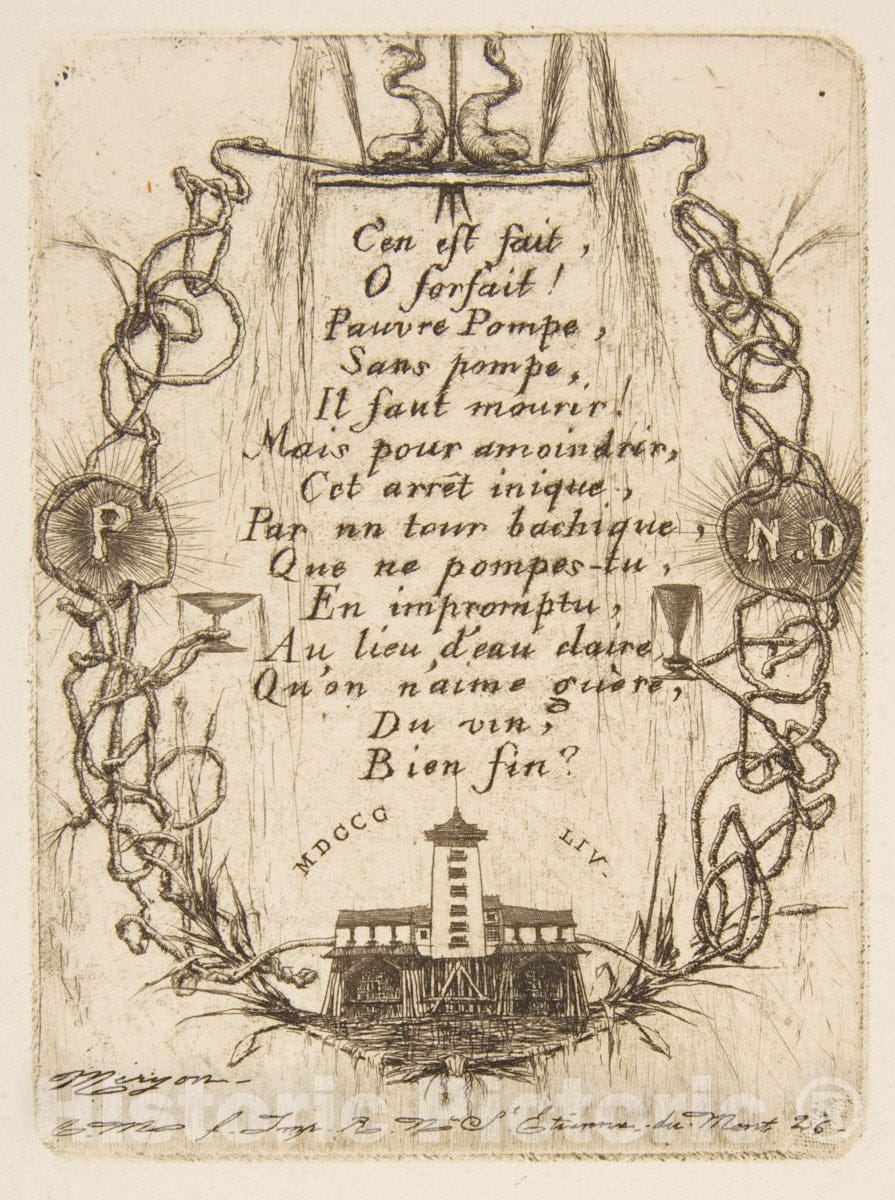 C'en est fait,
O forfait!
Pauvre Pompe,
Sans pompe,
Il faut mourir!
Mais pour amoindrir,
Cet arrêt inique,
Par nn tour bachique,
Que ne pompes-tu,
En impromptu,
Au lieu d'eau claire
Qu'on n'aime guère,
Du vin,
Bien fin?
P
N.D
MDCCC
LIV.
Meryon
C. M. f. Imp. R. Nve St Etienne-du-Mont 26.
Historic Pictoric